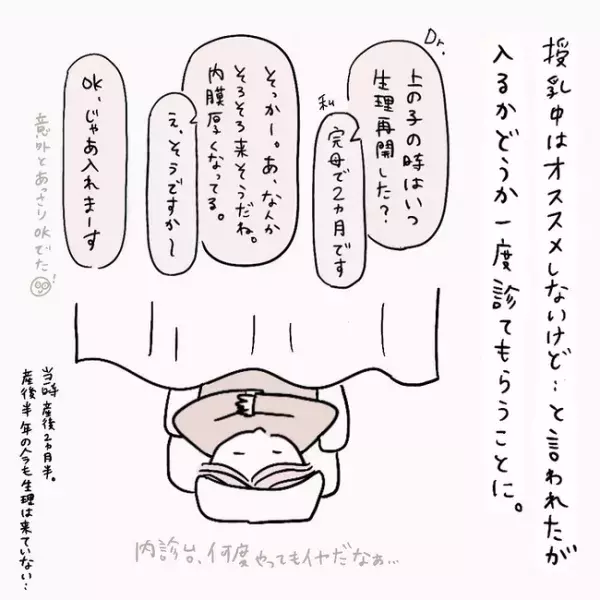 授乳中はオススメしないけど…と言われたが
入るかどうか一度診てもらうことに。
Dr.
上の子の時はいつ
生理再開した？
私
完母で2ヵ月です
そっかー。あ、なんか
そろそろ来そうだね。
内膜厚くなってる。
え、そうですか〜
OK、じゃあ入れまーす
意外とあっさりOKでた!
当時産後2ヵ月半。
産後半年の今も生理は来ていない…
内診台、何度やってもイヤだなぁ…